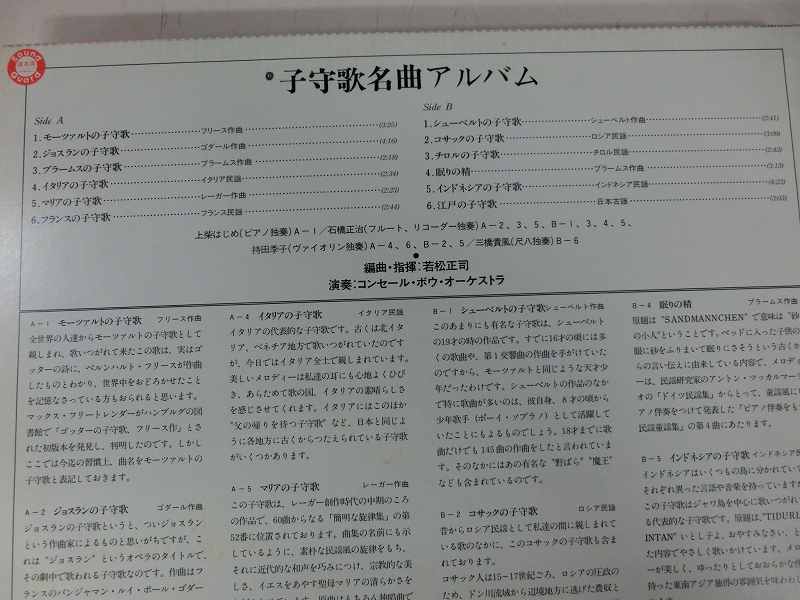 Sound Guard
子守歌名曲アルバム
Side A
1.モーツァルトの子守歌 フリース作曲 (3:25)
2.ジョスランの子守歌 ゴダール作曲 (4:16)
3.ブラームスの子守歌 ブラームス作曲 (2:18)
4.イタリアの子守歌 イタリア民謡 (2:34)
5.マリアの子守歌 レーガー作曲 (2:23)
6.フランスの子守歌 フランス民謡 (2:44)
Side B
1.シューベルトの子守歌 シューベルト作曲 (2:41)
2.コサックの子守歌 ロシア民謡
3.チロルの子守歌 チロル民謡
4.眠りの精 ブラームス作曲
5.インドネシアの子守歌 インドネシア民謡
6.江戸の子守歌 日本古謡
上柴はじめ(ピアノ独奏)A-1/石橋正治(フルート、リコーダー独奏)A-2、3、5、B-1、3、4、5、
持田季子(ヴァイオリン独奏)A-4、6、B-2、5/三橋貴風(尺八独奏)B-6
編曲・指揮:若松正司
演奏:コンセール・ボウ・オーケストラ
A-1 モーツァルトの子守歌 フリース作曲
全世界の人達からモーツァルトの子守歌として
親しまれ、歌いつがれて来たこの歌は、実はゴ
ッターの詩に、ベルンハルト・フリースが作曲
したものとわかり、世界中をおどろかせたこと
を記憶なさっている方もおられると思います。
マックス・フリートレンダーがハンブルグの図
書館で「ゴッターの子守歌、フリース作」とさ
れた初版本を発見し、判明したのです。しかし
ここでは今迄の習慣上、曲名をモーツァルトの
子守歌と表記しておきます。
A-2 ジョスランの子守歌 ゴダール作曲
ジョスランの子守歌というと、ついジョスラン
という作曲家によるものと思いがちですが、こ
れは"ジョスラン"というオペラのタイトルで、
その劇中で歌われる子守歌なのです。作曲はフ
ランスのバンジャマン・ルイ・ポール・ゴダー
A-4 イタリアの子守歌 イタリア民謡
イタリアの代表的な子守歌です。古くは北イタ
リア、ベネチア地方で歌いつがれていたのです
が、今日ではイタリア全土で親しまれています。
美しいメロディーは私達の耳にも心地よくひび
き、あらためて歌の国、イタリアの素晴らしさ
を感じさせてくれます。イタリアにはこのほか
"父の帰りを待つ子守歌"など、日本と同じよ
うに各地方に古くからつたえられている子守歌
がいくつかあります。
A-5 マリアの子守歌 レーガー作曲
この子守歌は、レーガー創作時代の中期のころ
の作品で、60曲からなる「簡明な旋律集」の第
52番に位置されております。曲集の名前にも示
しているように、素朴な民謡風の旋律をもち、
それに近代的な和声を巧みにつけ、宗教的な美
しさ、イエスをあやす聖母マリアの清らかさを
B-1 シューベルトの子守歌 シューベルト作曲
このあまりにも有名な子守歌は、シューベルト
の19才の時の作品です。すでに16才の頃には多
くの歌曲や、第1交響曲の作曲を手がけていた
のですから、モーツァルトと同じような天才少
年だったわけです。シューベルトの作品のなか
で特に歌曲が多いのは、彼自身、8才の頃から
少年歌手(ボーイ・ソプラノ)として活躍して
いたことにもよるものでしょう。18才までに歌
曲だけでも145曲の作曲をしたと言われていま
す。そのなかにはあの有名な"野ばら""魔王"
なども含まれているのです。
B-2 コサックの子守歌 ロシア民謡
昔からロシア民謡として私達の間に親しまれて
いる歌のなかに、このコサックの子守歌も含ま
れております。
コサック人は15-17世紀ごろ、ロシアの圧政の
ため、ドン川流域から辺境地方に逃げた農奴と
B-4 眠りの精 ブラームス作曲
原題は"SANDMANNCHEN"で意味は"砂
の小人"ということです。ベッドに入った子供の
眼に砂をふりまいて眠りにさそうという古くか
らの言い伝えに由来している内容で、メロデ
ーは、民謡研究家のアントン・ツッカルマー
オの『ドイツ民謡集』からとって、童謡風に
アノ伴奏をつけて発表した「ピアノ伴奏をも
民謡童謡集」の第4曲にあたります。
B-5 インドネシアの子守歌 インドネシア民
インドネシアはいくつもの島に分かれてい
それぞれ異った言語や音楽を持っています
この子守歌はジャワ島を中心に歌いつがれ
る代表的な子守歌です。原題は、"TIDURL
INTAN"いとし子よ、おやすみなさい、と
た内容でやさしく歌いかけています。メロ
ーが美しく、ゆったりとしておおらかな
持った東南アジア独特の雰囲気を味わ